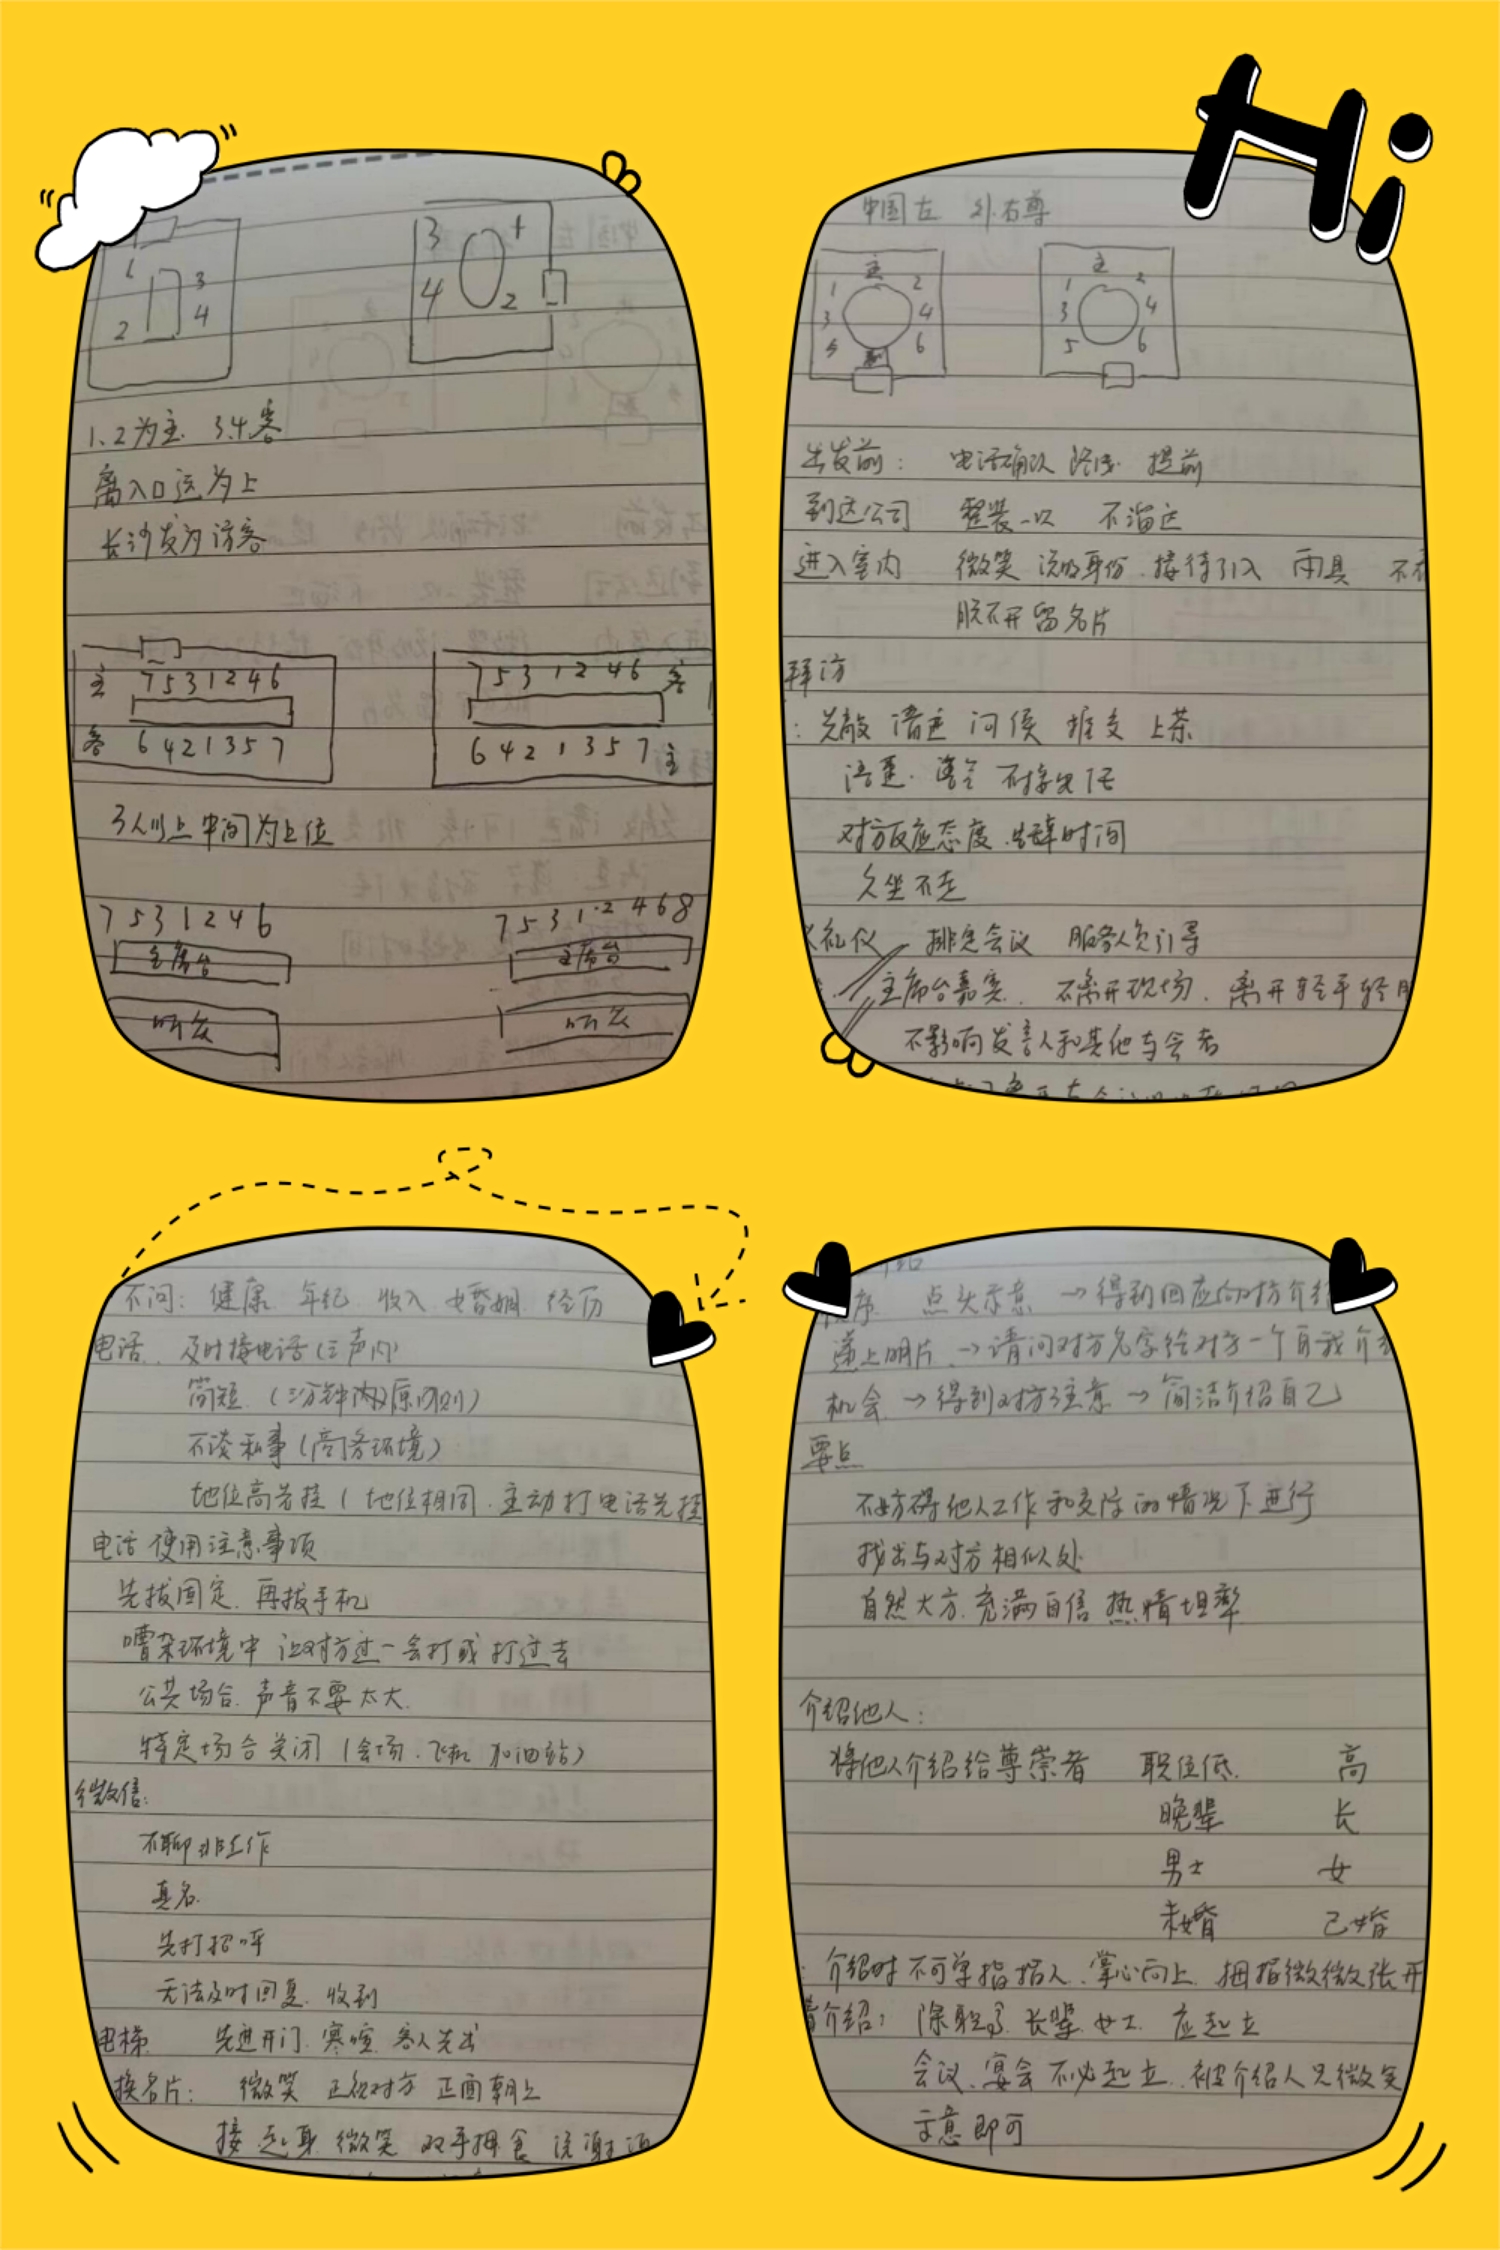 Hi
1 3
2 4
3 1
4 2
1.2为主 3.4客
离入口远为上
长沙发为访客
主 7 5 3 1 2 4 6
客 6 4 2 1 3 5 7
7 5 3 1 2 4 6 客
6 4 2 1 3 5 7 主
3人以上中间为上位
7 5 3 1 2 4 6
主席台
听众
7 5 3 1 2 4 6 8
主席台
听众
中国左 外右尊
主
1 2
3 4
5 6
主
1 2
3 4
5 6
出发前: 电话确认 路线 提前
到达公司 整装 不溜达
进入室内 微笑 说明身份 接待引入 雨具 不
脱不开留名片
拜访
: 先敲 请进 问候 上茶
对方反应态度 告辞时间
久坐不走
礼仪 排定会议 服务人员引导
主席台嘉宾 不离开现场 离开轻手轻
不影响发言人和其他与会者
不问: 健康 年纪 收入 婚姻 经历
电话 及时接电话(三声内)
简短 (三分钟内原则)
不谈私事(商务环境)
地位高先挂 (地位相同 主动打电话先挂
电话使用注意事项
先拔固定 再拔手机
嘈杂环境中 让对方过一会打或打过去
公共场合 声音不要太大
特定场合关闭 (会场 飞机 加油站)
微信:
不聊非工作
真名
先打招呼
无法及时回复 收到
电梯 先进开门 寒喧 客人先出
换名片: 微笑 正视对方 正面朝上
接 起身 微笑 双手拇食 说谢
序 点头示意 →得到回应向对方介绍
递上明片 →请问对方名字给对方一个自我介
机会 →得到对方注意 →简洁介绍自己
要点
不妨碍他人工作和交际的情况下进行
找出与对方相似处
自然大方 充满自信 热情坦率
介绍他人:
将他人介绍给尊崇者 职位低 高
晚辈 长
男士 女
未婚 已婚
: 介绍时不可单指指人 掌心向上 拇指微微张开
介绍: 除职高 长辈 女士 应起立
会议 宴会 不必起立 被介绍人只微笑
示意即可